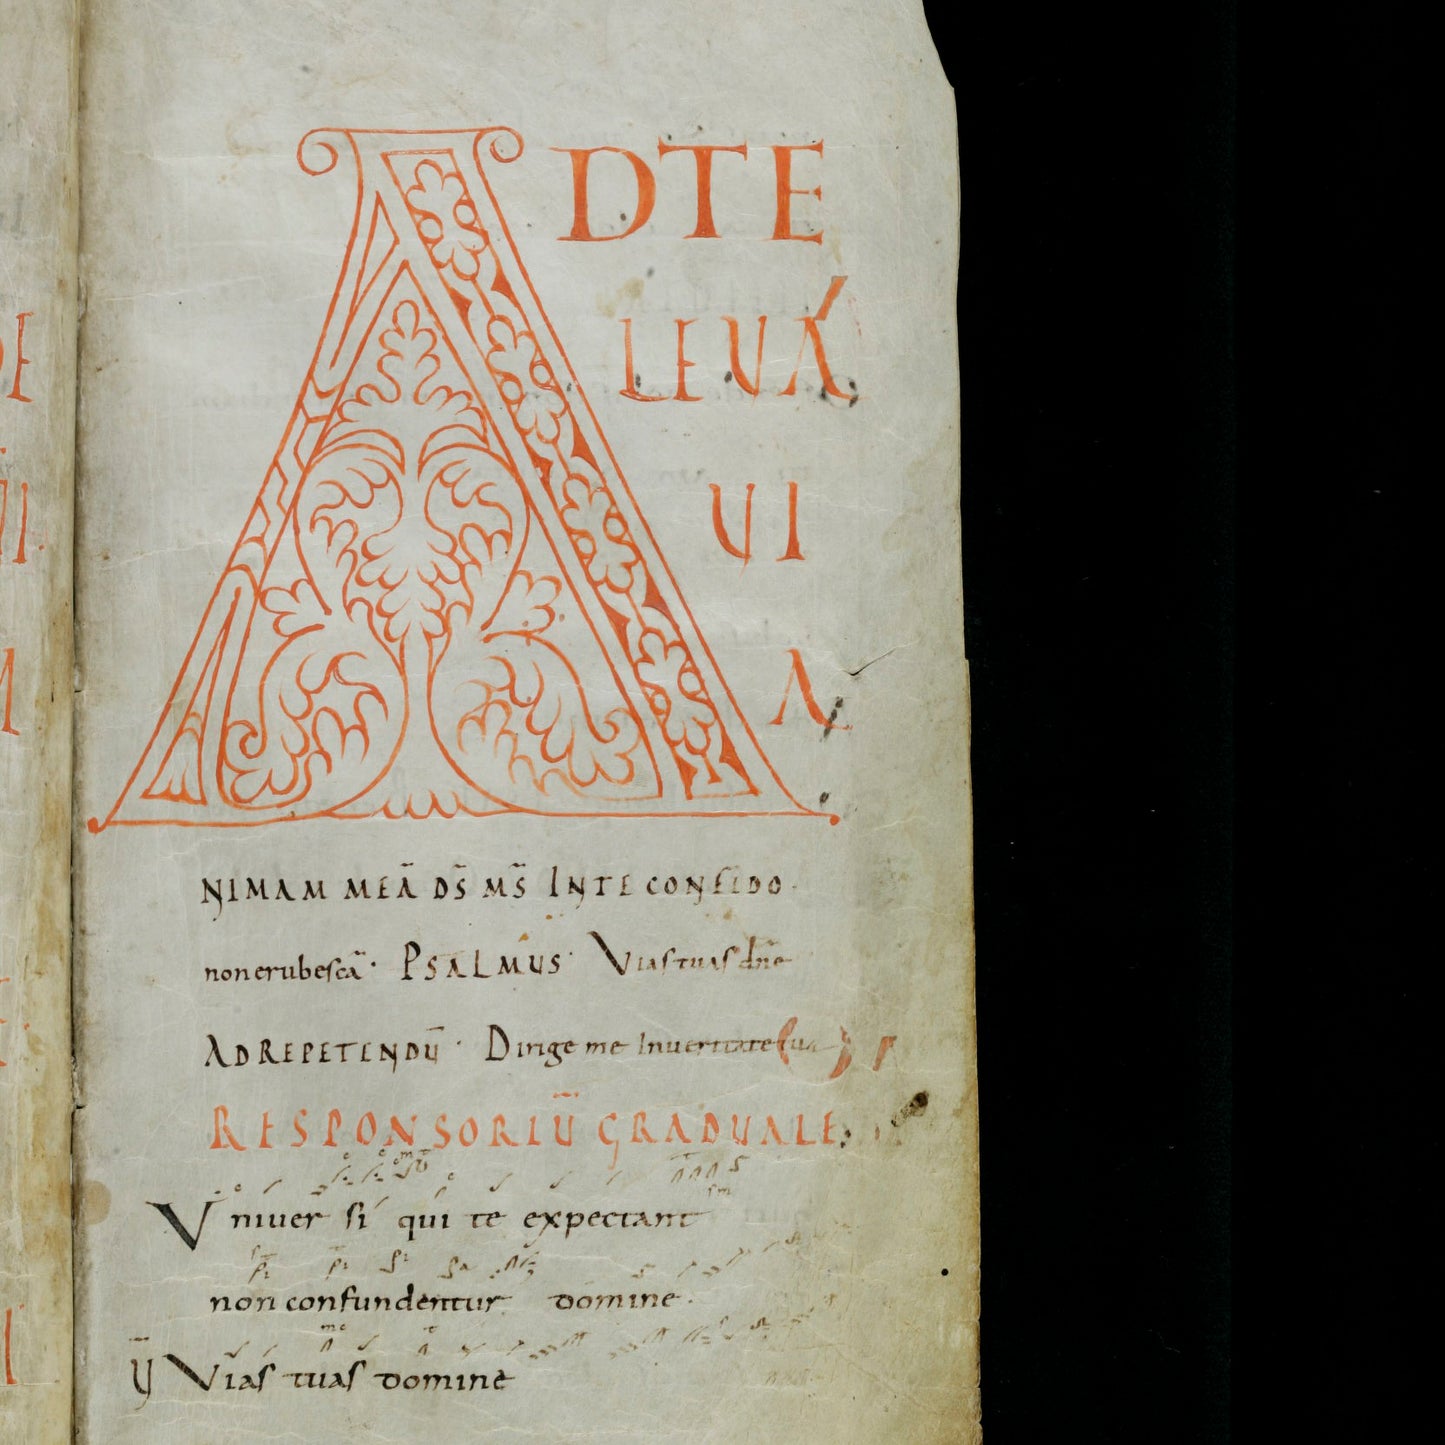 AD TE
LEUA
UI
A
NIMAM MEĀ DS̄ MS̄ IN TE CONFIDO·
non erubescā· PSALMUS· Vias tuas dn̄e
AD REPETENDŪ· Dirige me In ueritate tua
RESPONSORIŪ GRADUALE
Vniuer si qui te expectant
non confundentur domine·
V̄ Vias tuas domine